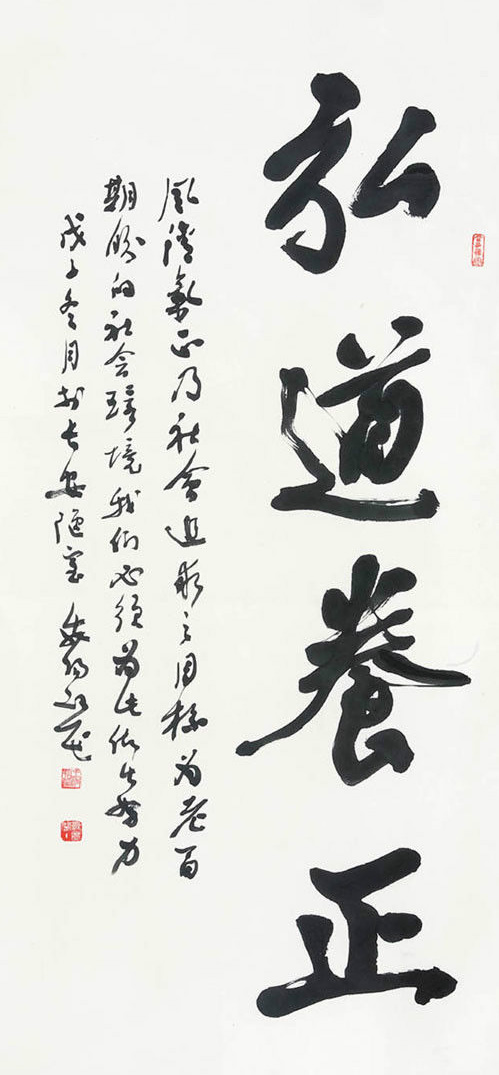 弘道養正
風清氣正乃社會追求之目標為老百
期盼的社会環境我们必須為此做出努力
戊子冬月於长安陋室